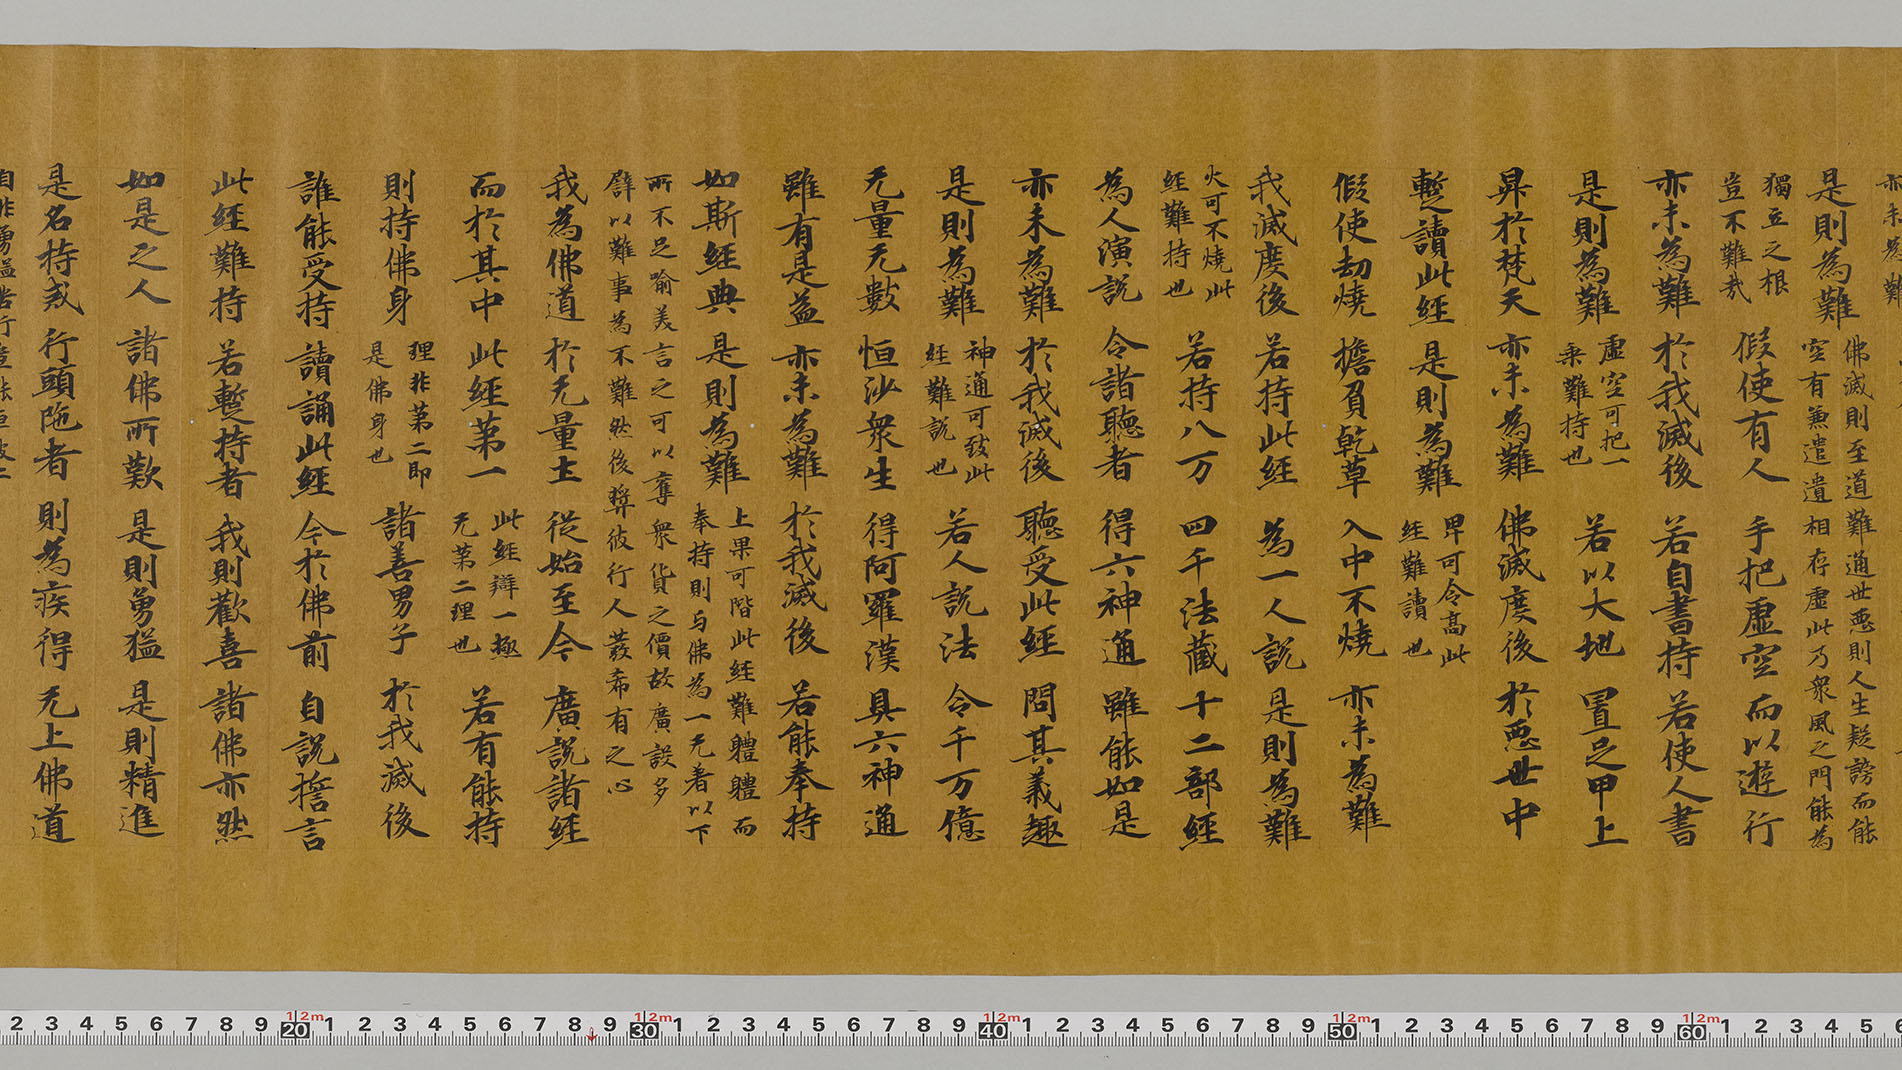 亦未為難
是則為難
佛滅則至道難通世惡則人生疑謗而能
空有兼遣遺相存虛此乃衆風之門能為
獨立之根
豈不難哉
假使有人 手把虛空 而以遊行
亦未為難 於我滅後 若自書持 若使人書
是則為難
虛空可把一
乘難持也
若以大地 置足甲上
昇於梵天 亦未為難 佛滅度後 於惡世中
暫讀此經 是則為難
卑可令高此
經難讀也
假使劫燒 擔負乾草 入中不燒 亦未為難
我滅度後 若持此經 為一人說 是則為難
火可不燒此
經難持也
若持八万 四千法藏 十二部經
為人演說 令諸聽者 得六神通 雖能如是
亦未為難 於我滅後 聽受此經 問其義趣
是則為難
神通可致此
經難說也
若人說法 令千万億
无量无數 恒沙衆生 得阿羅漢 具六神通
雖有是益 亦未為難 於我滅後 若能奉持
如斯經典 是則為難
上果可階此經難軆軆而
奉持則与佛為一无著以下
所不足喻美言之可以奪衆貨之價故廣設多
辟以難事為不難然後弊彼行人䕺希有之心
我為佛道 於无量土 從始至今 廣說諸經
而於其中 此經第一
此經辯一極
无第二理也
若有能持
則持佛身
理非第二即
是佛身也
諸善男子 於我滅後
誰能受持 讀誦此經 今於佛前 自說誓言
此經難持 若暫持者 我則歡喜 諸佛亦然
如是之人 諸佛所歎 是則勇猛 是則精進
是名持戒 行頭陁者 則為疾得 无上佛道